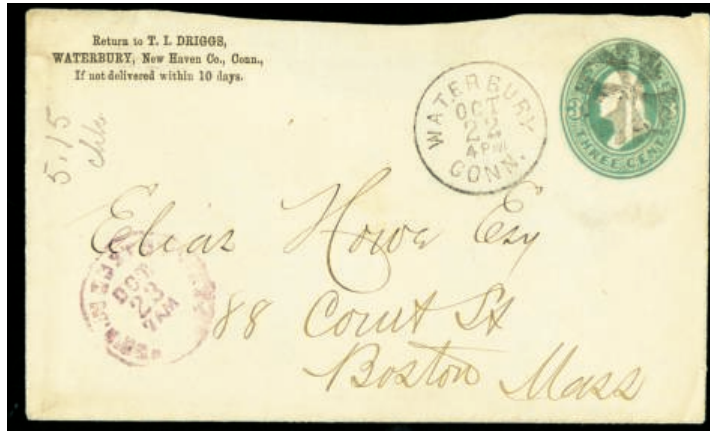 Return to T. I. DRIGGS,
WATERBURY, New Haven Co., Conn.,
If not delivered within 10 days.
WATERBURY
OCT
22
4 PM
CONN.
THREE CENTS
5.15
Elias Howe Esq
OCT
23
7 AM
88 Court St
Boston Mass